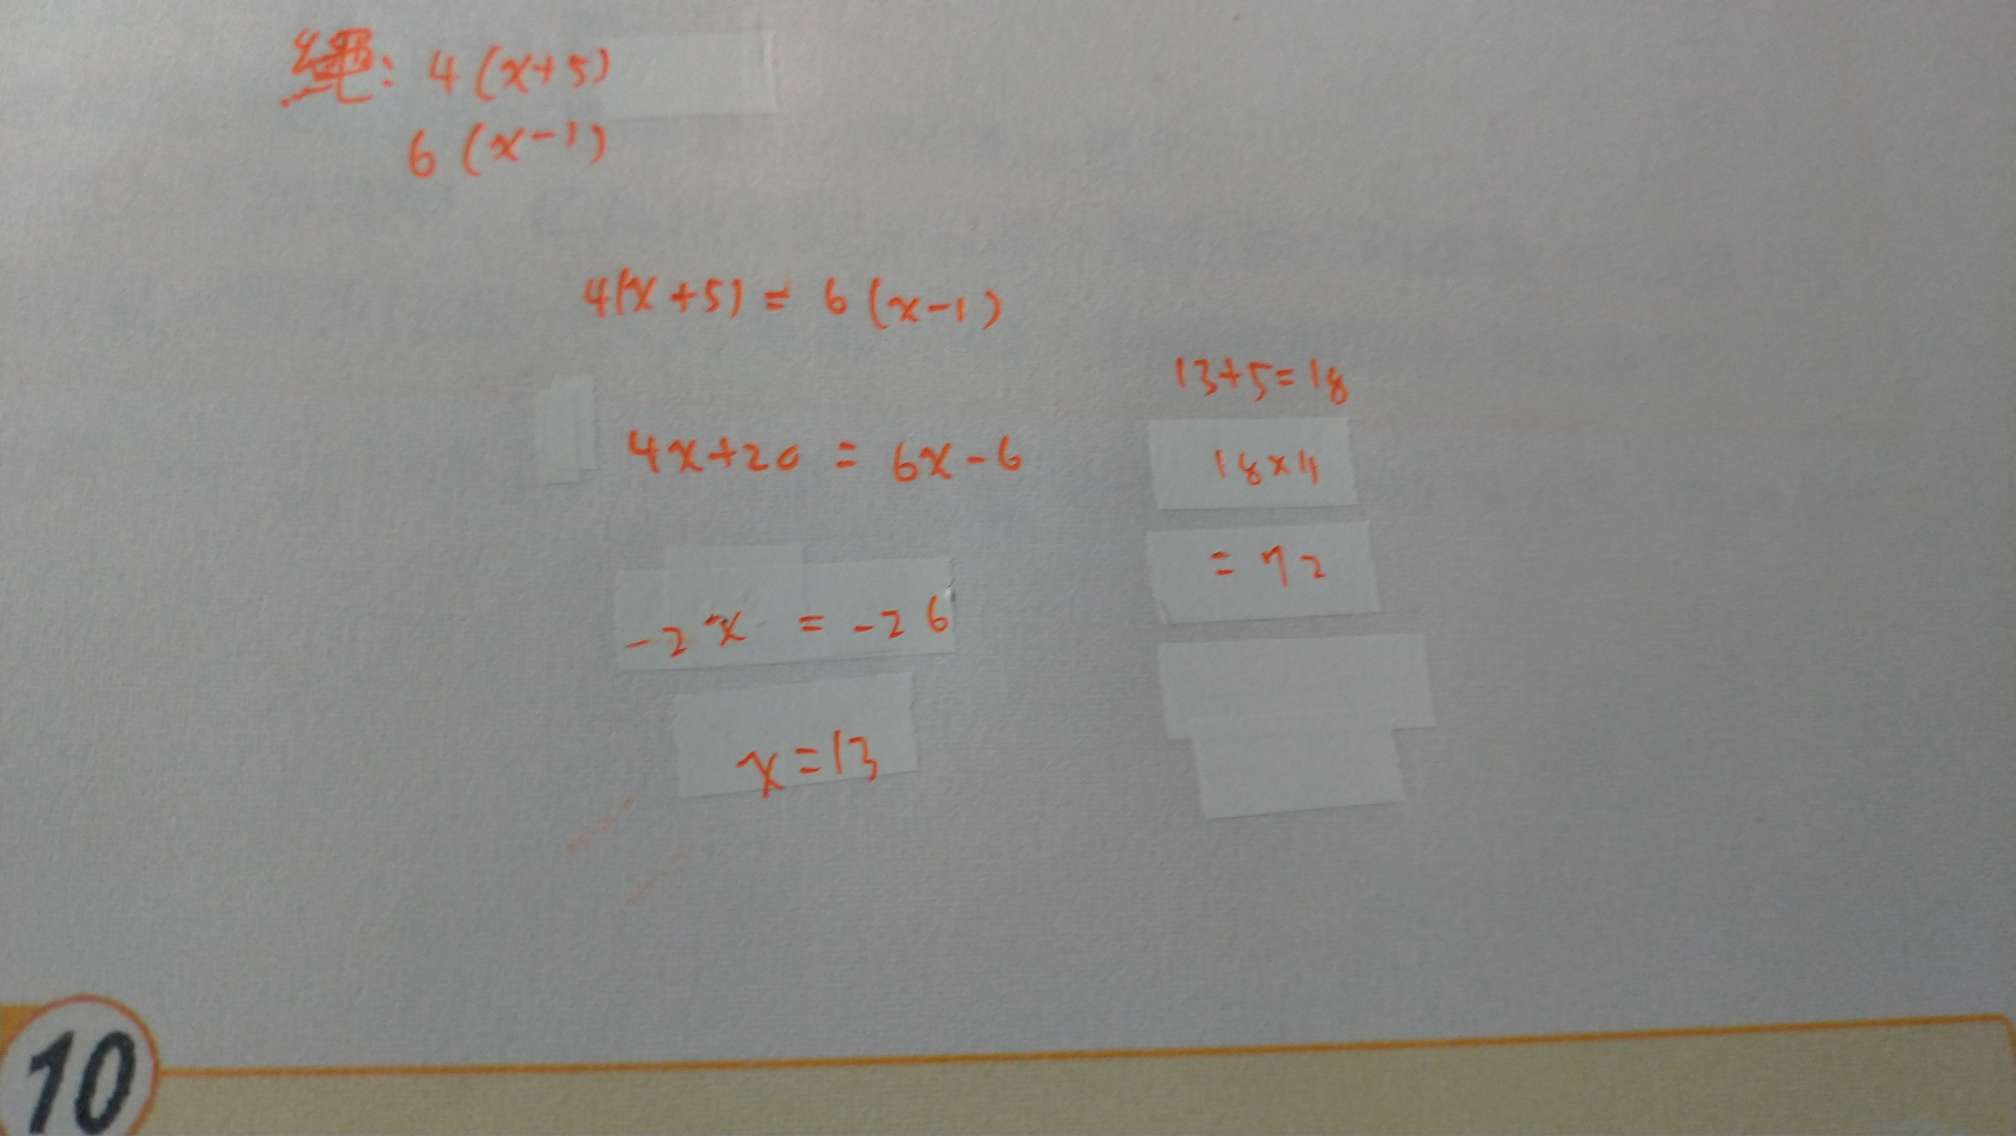 繩: 4(x+5)
6(x-1)
4(x+5) = 6(x-1)
4x+20 = 6x-6
-2x = -26
x=13
13+5=18
18×4
= 72
10